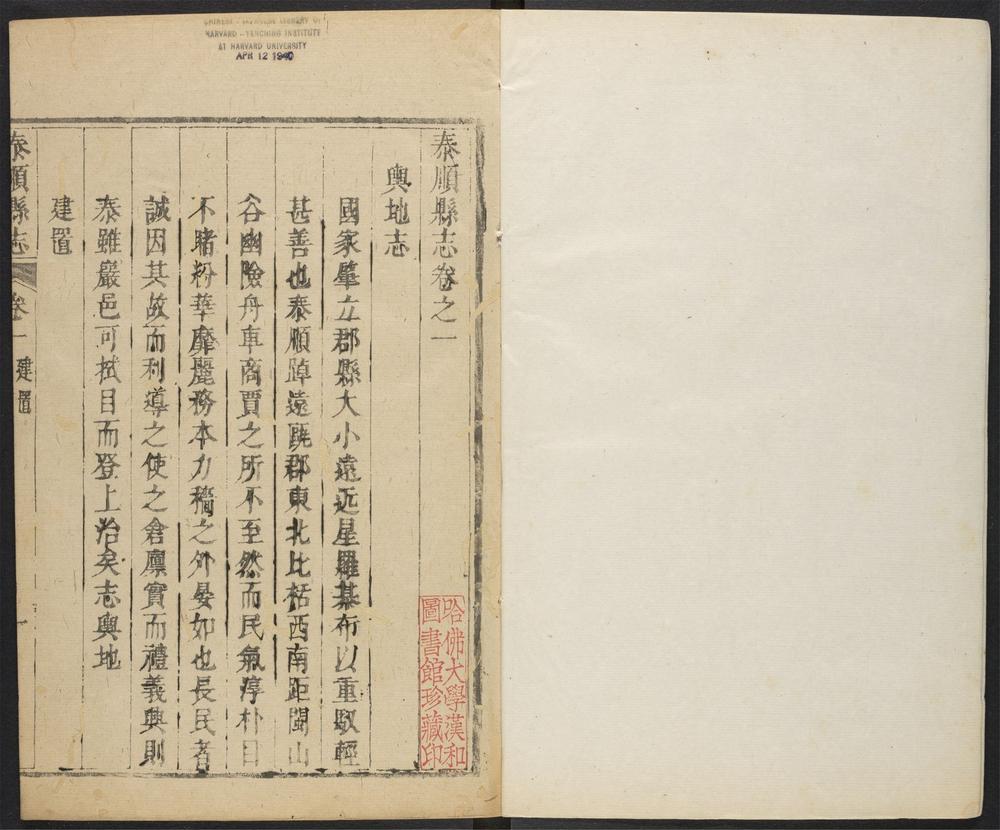 CHINESE - JAPANESE LIBRARY OF
HARVARD - YENCHING INSTITUTE
AT HARVARD UNIVERSITY
APR 12 1940
泰順縣志卷之一
輿地志
國家肇立郡縣大小遠近星羅棊布以重馭輕
甚善也泰順踔遠甌郡東北比栝西南距閩山
谷幽險舟車商賈之所不至然而民氣淳朴日
不睹紛華靡麗務本力穡之外晏如也長民者
誠因其故而利導之使之倉廩實而禮義興則
泰雖巖邑可拭目而登上治矣志輿地
建置
泰順縣志
卷一 建置
一
哈佛大學漢和
圖書館珍藏印